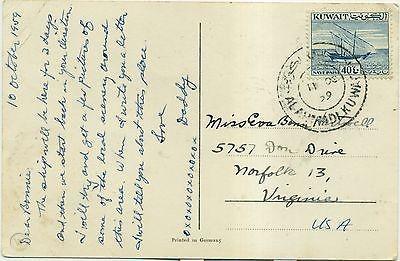 10 October 1959
Dear Bonnie
The ship will be here for 2 days
and then we start back in your direction
I will try and get a few pictures of
some of the local scenery around
this area. When I write you a letter
I will tell you about this place.
Love
Daddy
oxoxoxoxoxoxox
Printed in Germany
KUWAIT
الكويت
40
AL AHMADI, KUWAIT
11 OC
59
Miss Eva
5757 Don Drive
Norfolk 13,
Virginia
USA